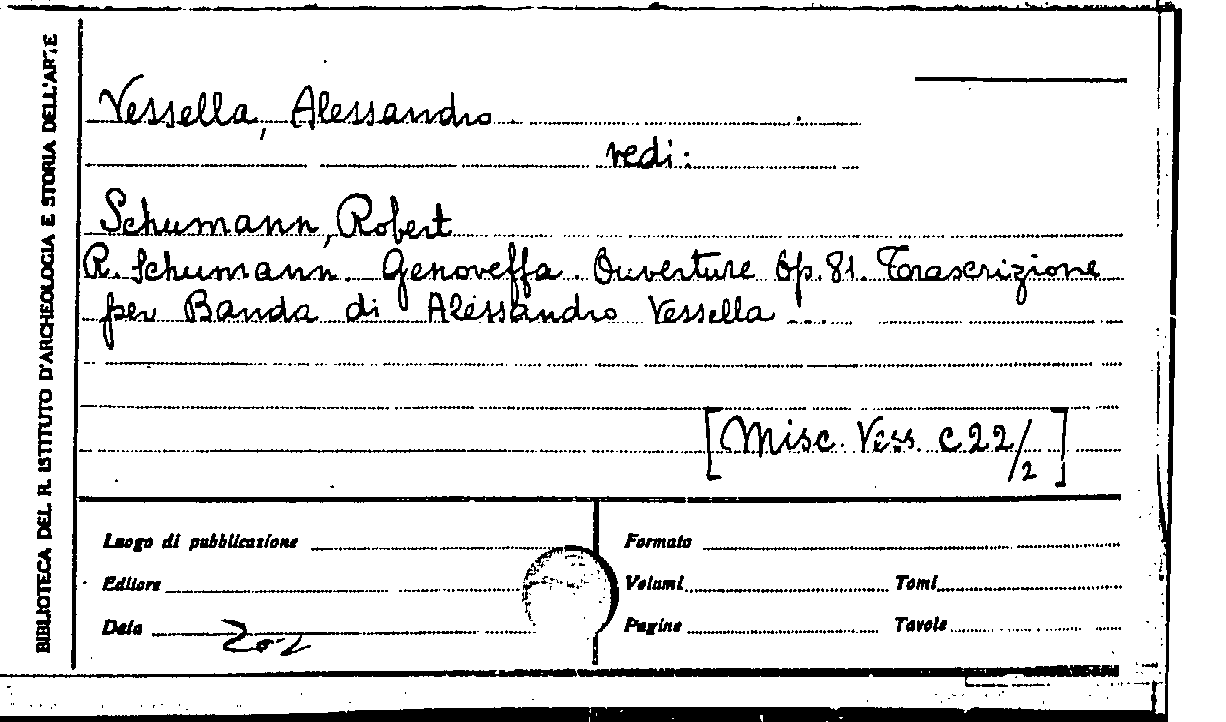 BIBLIOTECA DEL R. ISTITUTO D'ARCHEOLOGIA E STORIA DELL'ARTE
Vessella, Alessandro
vedi:
Schumann, Robert
R. Schumann. Genoveffa. Ouverture Op. 81. Trascrizione
per Banda di Alessandro Vessella ...
[Misc. Vess. C 22/2]
Luogo di pubblicazione
Editore
Data
Formato
Volumi Tomi
Pagine Tavole